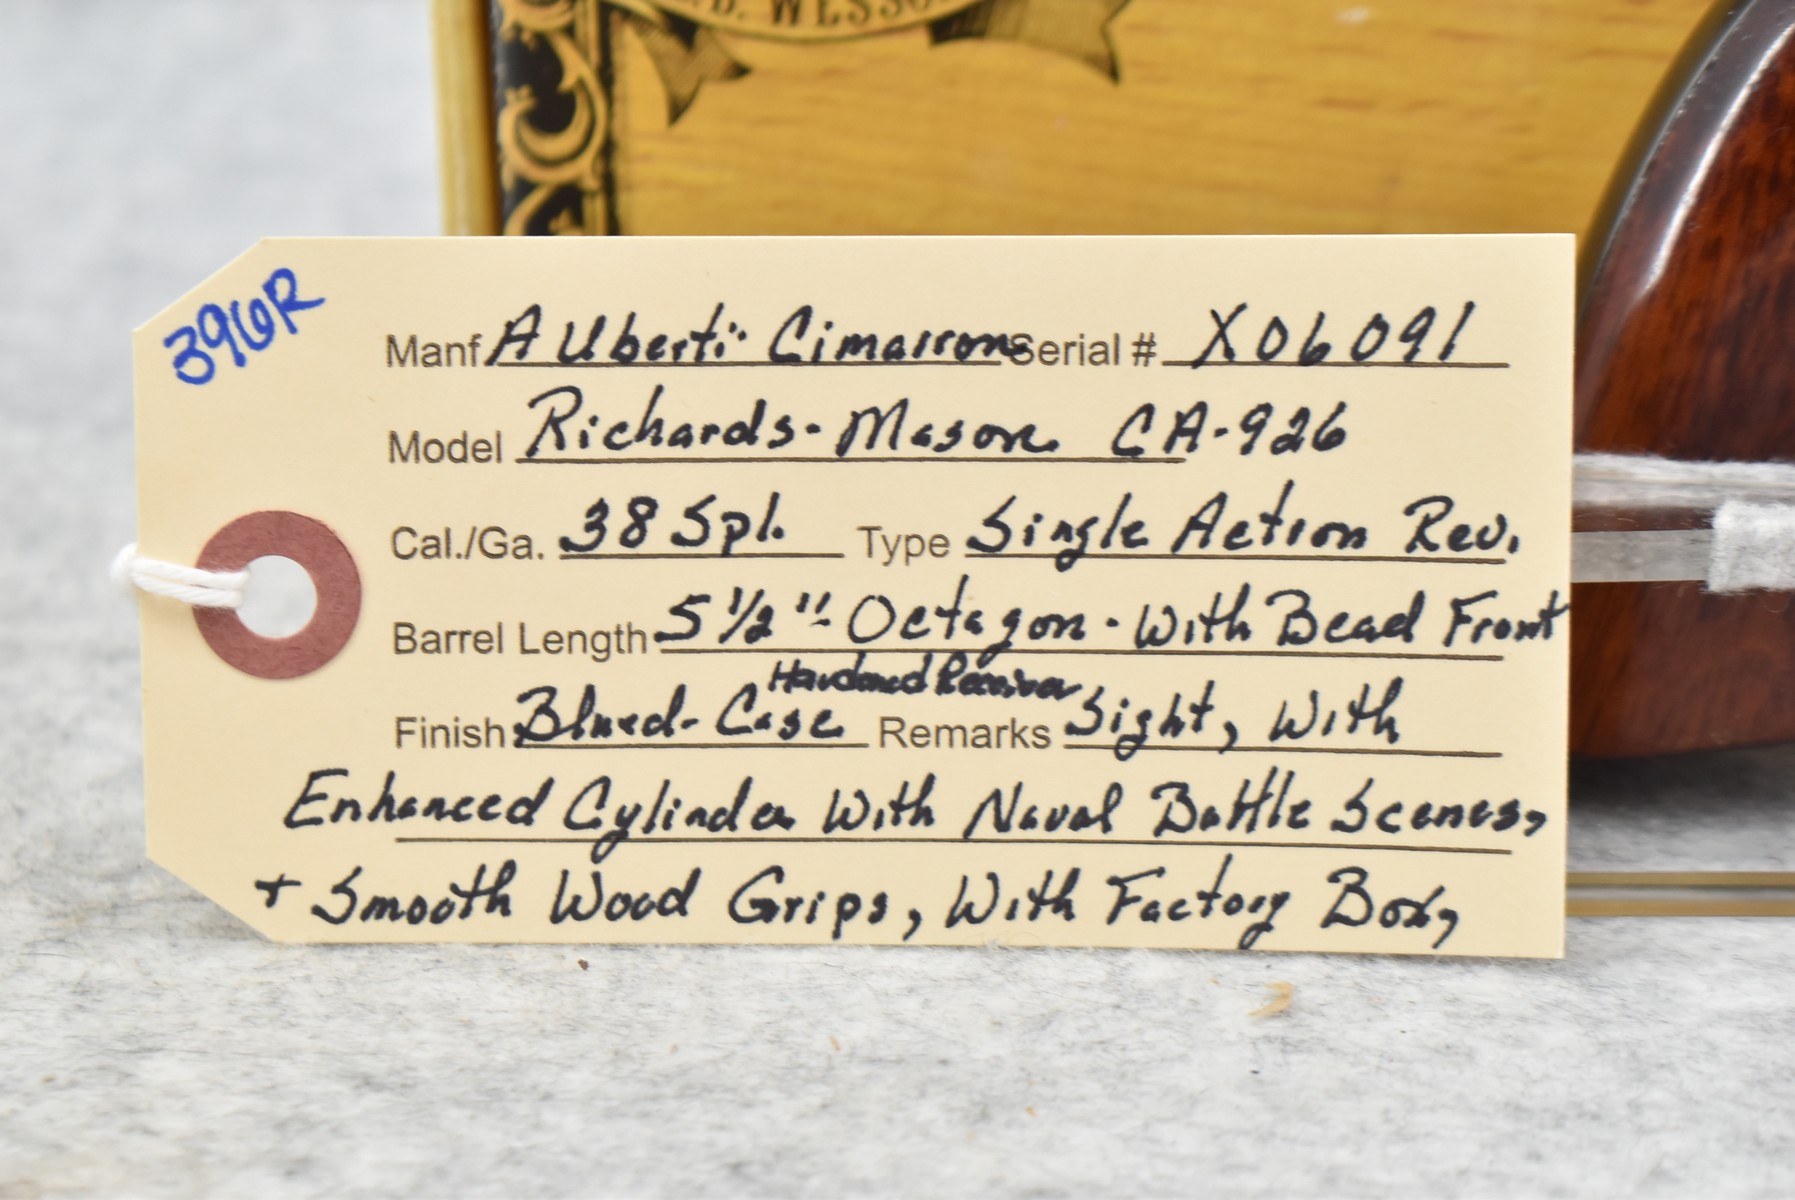 B. WESSON
396R
Manf A Uberti - Cimarron Serial # X06091
Model Richards - Mason CA-926
Cal./Ga. 38 Spl. Type Single Action Rev.
Barrel Length 5 1/2" Octagon - With Bead Front
Hardened Receiver
Finish Blued - Case Remarks Sight, With
Enhanced Cylinder With Naval Battle Scenes,
+ Smooth Wood Grips, With Factory Box,